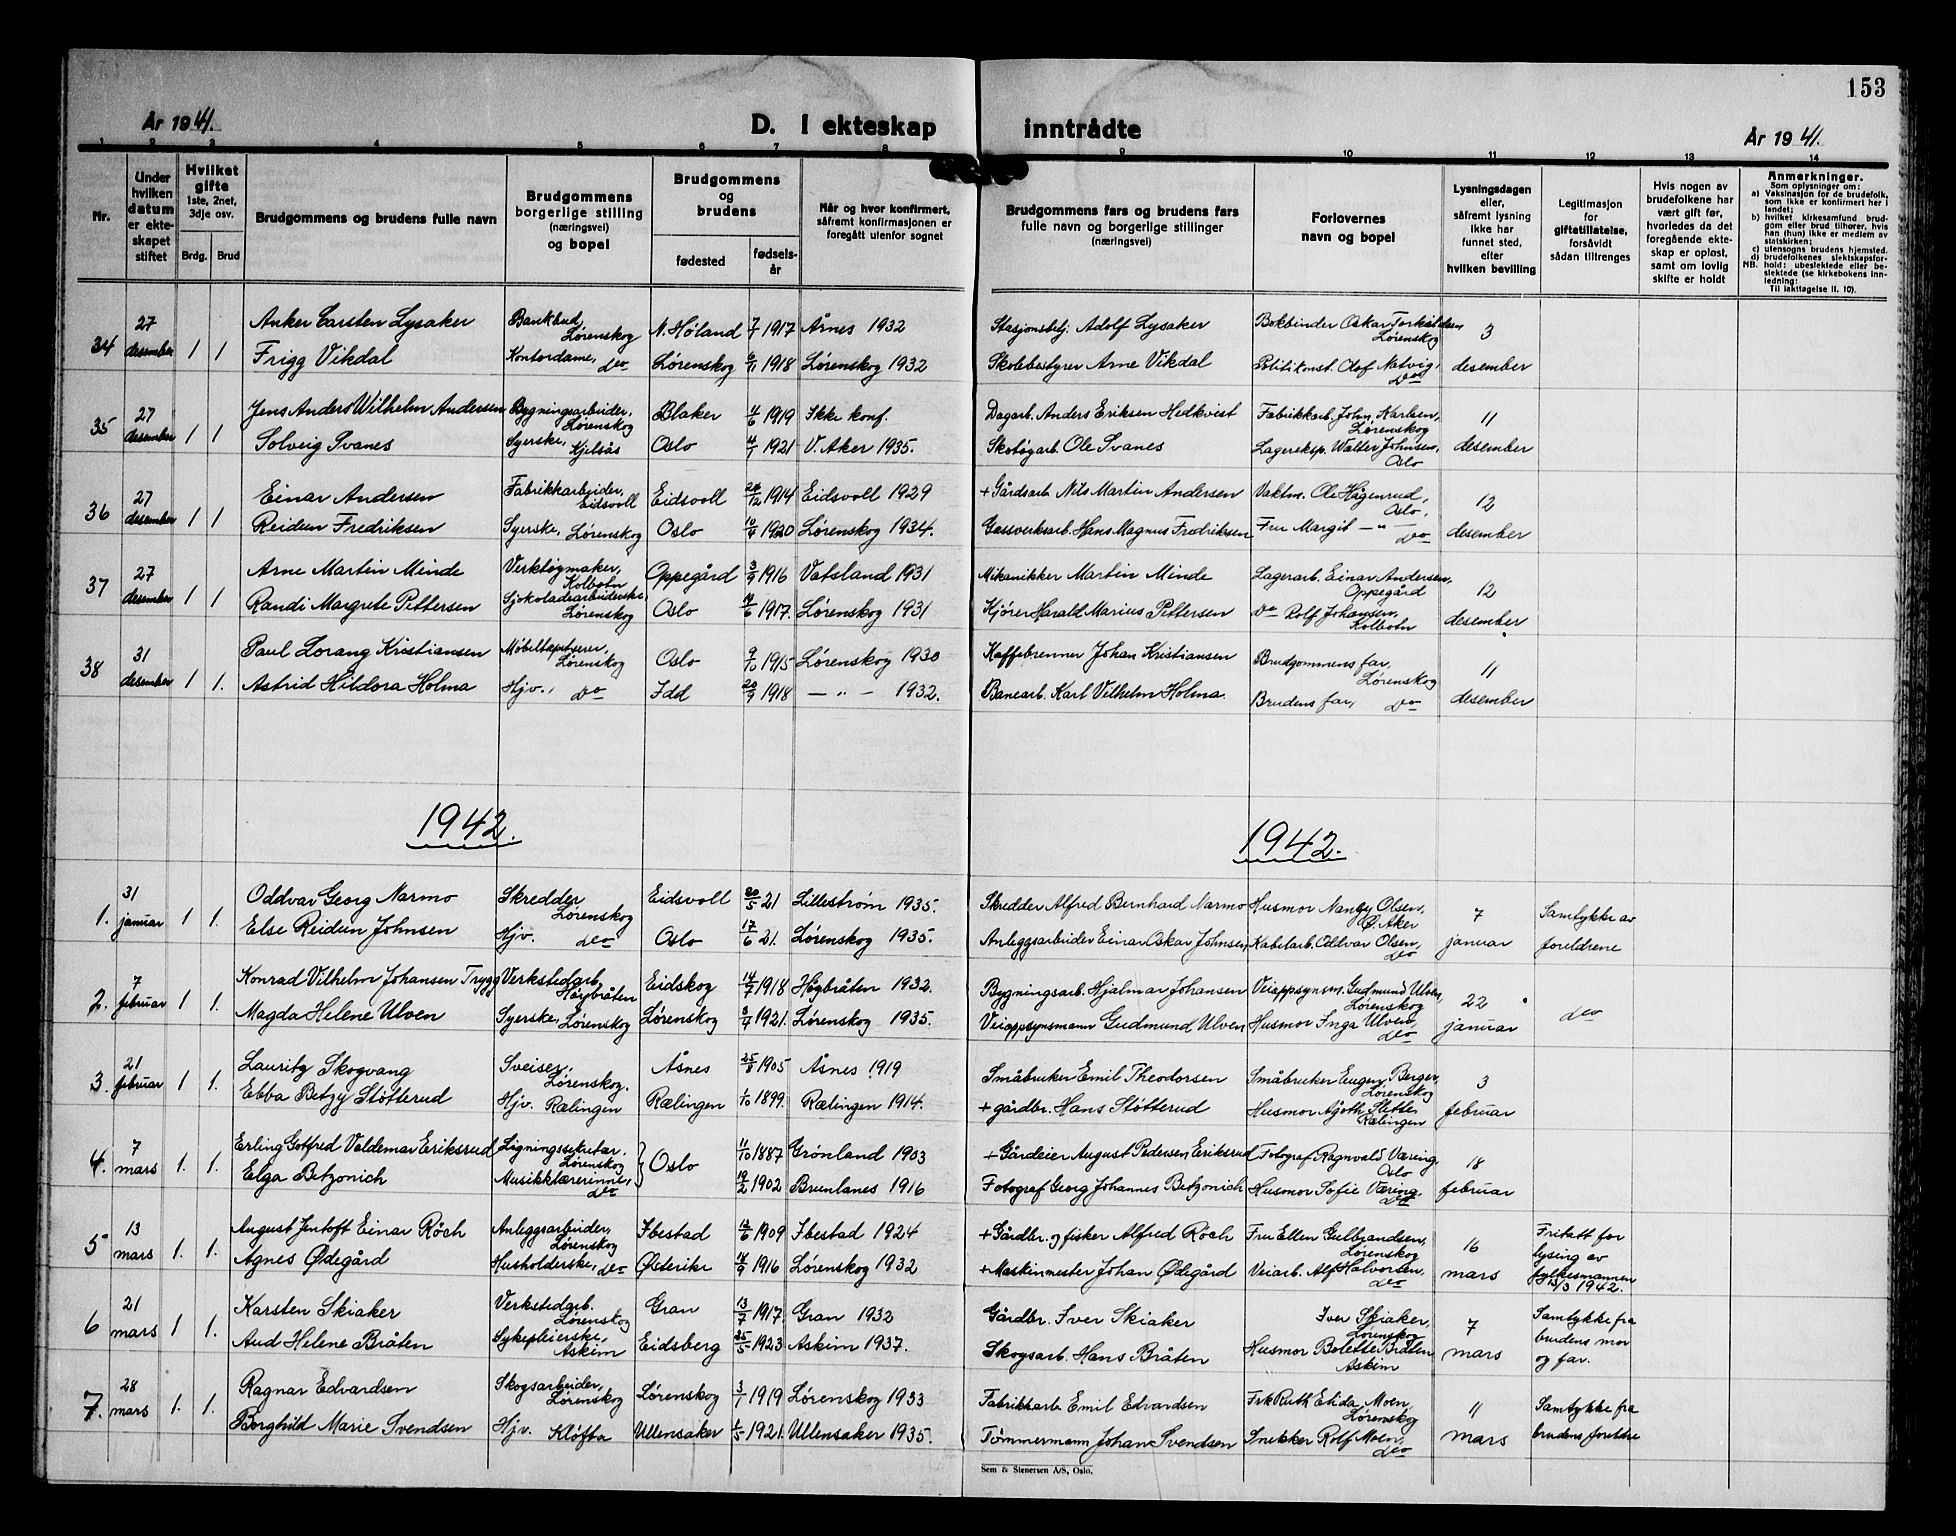 153
År 1941.
D. I ekteskap inntrådte
År 1941.
1 2 3 4 5 6 7 8 9 10 11 12 13 14
Nr.
Under hvilken datum er ekteskapet stiftet
Hvilket gifte 1ste, 2net, 3dje osv.
Brdg. Brud
Brudgommens og brudens fulle navn
Brudgommens borgerlige stilling (næringsvei) og bopel
Brudgommens og brudens
fødested
fødselsår
Når og hvor konfirmert, såfremt konfirmasjonen er foregått utenfor sognet
Brudgommens fars og brudens fars fulle navn og borgerlige stillinger (næringsvei)
Forlovernes navn og bopel
Lysningsdagen eller, såfremt lysning ikke har funnet sted, efter hvilken bevilling
Legitimasjon for giftetillatelse, forsåvidt sådan tiltrenges
Hvis nogen av brudefolkene har vært gift før, hvorledes da det foregående ekteskap er opløst, samt om lovlig skifte er holdt
Anmerkninger.
Som oplysninger om:
a) Vaksinasjon for de brudefolk, som ikke er konfirmert her i landet;
b) hvilket kirkesamfund brudgom eller brud tilhører, hvis han (hun) ikke er medlem av statskirken;
c) utensogns brudens hjemsted.
d) brudefolkenes slektskapsforhold: ubeslektede eller beslektede (se kirkebokens innledning:
NB.
Til iakttagelse II. 10).
34 27 desember 1 1 Anker Carsten Lysaker Bankbud, Lørenskog N. Høland 7/7 1917 Årnes 1932 Stasjonsbetj. Adolf Lysaker Bokbinder Oskar Torkildsen Lørenskog 3
Frigg Vikdal Kontordame, do Lørenskog 6/11 1918 Lørenskog 1932 Skolebestyrer Arne Vikdal Politikonst. Olaf Natvig, do desember
35 27 desember 1 1 Jens Anders Wilhelm Andersen Bygningsarbeider, Lørenskog Blaker 4/6 1919 Ikke konf. Dagarb. Anders Eriksen Hedkvist Fabrikkarb. John Karlsen, Lørenskog 11
Solveig Svanes Syerske, Kjelsås Oslo 4/1 1921 V. Aker 1935. Skotøyarb. Ole Svanes Lagereksp. Walter Johnsen, Oslo desember
36 27 desember 1 1 Einar Andersen Fabrikkarbeider, Eidsvoll Eidsvoll 26/12 1914 Eidsvoll 1929 + Gårdsarb. Nils Martin Andersen Vaktm. Ole Hågenrud, Oslo. 12
Reidun Fredriksen Syerske, Lørenskog Oslo 10/4 1920 Lørenskog 1934. Gassverksarb. Hans Magnus Fredriksen Fru Margit — " — do desember
37 27 desember 1 1 Arne Martin Minde Verktøymaker, Kolbotn Oppegård 3/9 1916 Vatsland 1931 Mekanikker Martin Minde Lagerarb. Einar Andersen, Oppegård 12
Randi Margrete Pettersen Sjokoladearbeiderske, Lørenskog Oslo 14/6 1917. Lørenskog 1931 Kjører Harald Marius Pettersen do Rolf Johansen, Kolbotn desember
38 31 desember 1 1. Paul Lorang Kristiansen Møbeltapetserer, Lørenskog Oslo 9/10 1915 Lørenskog 1930 Kaffebrenner Johan Kristiansen Brudgommens far, Lørenskog 11
Astrid Hildora Holma Hjv., do Idd 20/9 1918 — " — 1932. Banearb. Karl Vilhelm Holma. Brudens far, do desember
1942. 1942.
1. 31 januar 1 1. Oddvar Georg Narmo Skredder, Lørenskog Eidsvoll 20/5 21 Lillestrøm 1935. Skredder Alfred Bernhard Narmo Husmor Nancy Olsen, Ø. Aker 7 Samtykke av
Else Reidun Johnsen Hjv. do Oslo 17/6 21. Lørenskog 1935. Anleggsarbeider Einar Oskar Johnsen, Kabelarb. Oddvar Olsen, do januar foreldrene
2. 7 februar 1 1. Konrad Vilhelm Johansen Trygg Verkstedarb. Høybråten Eidskog 14/7 1918 Høybråten 1932. Bygningsarb. Hjalmar Johansen Veioppsynsm. Gudmund Ulven, Lørenskog 22
Magda Helene Ulven Syerske, Lørenskog Lørenskog 3/4 1921. Lørenskog 1935. Veioppsynsmann Gudmund Ulven Husmor Inga Ulven, do januar do
3. 21 februar 1 1. Lauritz Skogvang Sveiser, Lørenskog. Åsnes 25/8 1905 Åsnes 1919 Småbruker Emil Theodorsen Småbruker Eugen Berger, Lørenskog 3
Ebba Betzy Støtterud Hjv. Rælingen Rælingen 1/10 1899. Rælingen 1914. + gårdbr. Hans Støtterud Husmor Agoth Slette Rælingen februar
4. 7 mars 1. 1. Erling Gotfred Valdemar Eriksrud Ligningssekretær, Lørenskog Oslo 11/10 1887 Grønland 1903 + Gårdeier August Pedersen Eriksrud Fotograf Ragnvald Væring, Oslo 18
Elga Betzonich Musikklærerinne, do 19/2 1902 Brunlanes 1916 Fotograf Georg Johannes Betzonich Husmor Sofie Væring, do februar
5 13 mars 1. 1. August Jentoft Einar Röch Anleggsarbeider, Lørenskog Ibestad 12/6 1909 Ibestad 1924 + Gårdbr. og fisker Alfred Röch Fru Ellen Gulbrandsen, Lørenskog 16 Fritatt for lysing av
Agnes Ødegård Husholderske, do Østerike 14/9 1916 Lørenskog 1932 + Maskinmester Johan Ødegård Veiarb. Alf Halvorsen, do mars fylkesmannen 13/3 1942.
6 21 mars 1 1. Karsten Skiaker Verkstedarb. Lørenskog Gran 13/7 1917. Gran 1932 Gårdbr. Iver Skiaker Iver Skiaker, Lørenskog 7 Samtykke fra
Aud Helene Bråten Sykepleierske, Askim Eidsberg 25/5 1923 Askim 1937. Skogsarb. Hans Bråten Husmor Bolette Bråten Askim mars brudens mor og far.
7. 28 mars 1. 1. Ragnar Edvardsen Skogsarbeider, Lørenskog Lørenskog 3/1 1919 Lørenskog 1933 Fabrikkarb. Emil Edvardsen Frk Ruth Elida Moen, Lørenskog 11 Samtykke fra
Borghild Marie Svendsen Hjv. Kløfta Ullensaker 6/5 1921. Ullensaker 1935. Tømmermann Johan Svendsen Snekker Rolf Moen, do mars brudens foreldre
Sem & Stenersen A/S, Oslo.